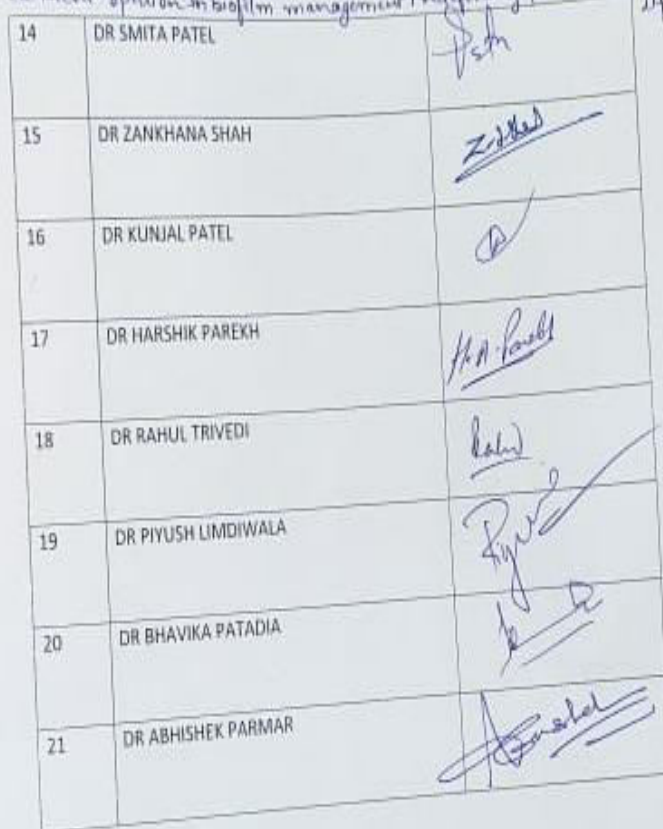 option in biofilm management
14 DR SMITA PATEL
15 DR ZANKHANA SHAH
16 DR KUNJAL PATEL
17 DR HARSHIK PAREKH
H.A. Parekh
18 DR RAHUL TRIVEDI
Rahul
19 DR PIYUSH LIMDIWALA
20 DR BHAVIKA PATADIA
21 DR ABHISHEK PARMAR